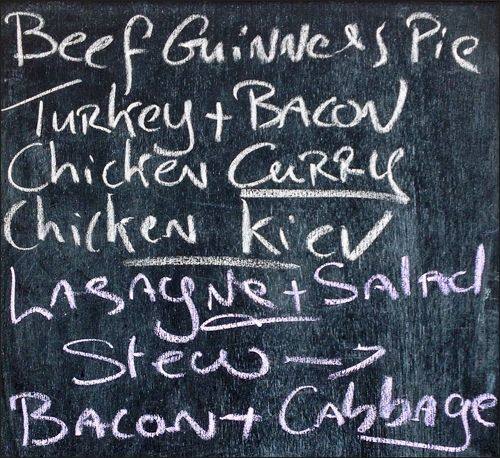 Beef Guinness Pie
Turkey + Bacon
Chicken Curry
Chicken Kiev
Lasagne + Salad
Stew →
Bacon + Cabbage